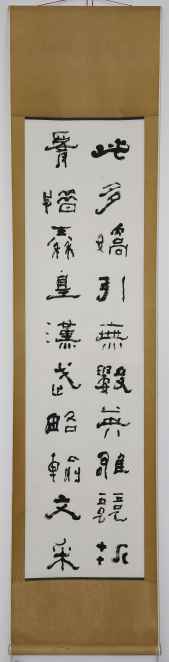 此多嬌引無數英雄競折
腰惜秦皇漢武略輸文采